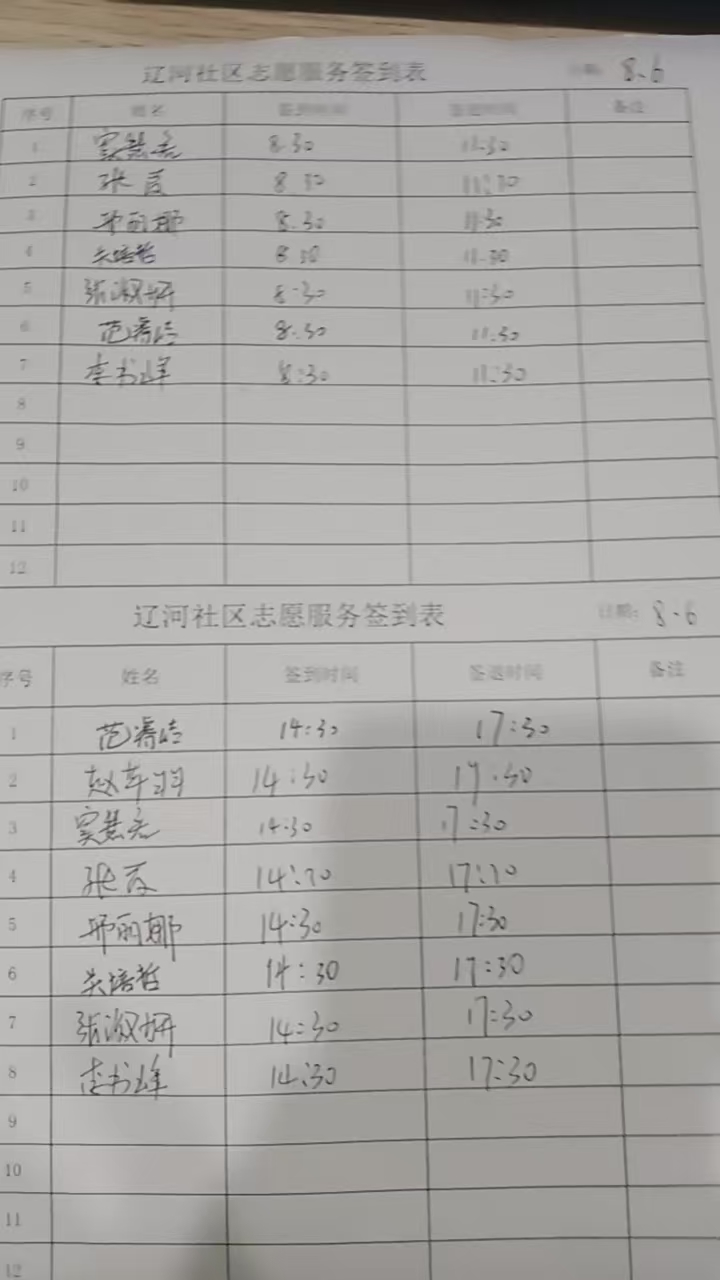 辽河社区志愿服务签到表 日期: 8.6
序号 姓名 签到时间 签退时间 备注
1 8:30 11:30
2 张夏 8:30 11:30
3 邢丽娜 8:30 11:30
4 关培哲 8:30 11:30
5 张淑妍 8:30 11:30
6 范 8:30 11:30
7 李书峰 8:30 11:30
8
9
10
11
12
辽河社区志愿服务签到表 日期: 8.6
序号 姓名 签到时间 签退时间 备注
1 范 14:30 17:30
2 赵 14:30 17:30
3 14:30 17:30
4 张夏 14:30 17:30
5 邢丽娜 14:30 17:30
6 关培哲 14:30 17:30
7 张淑妍 14:30 17:30
8 李书峰 14:30 17:30
9
10
11
12